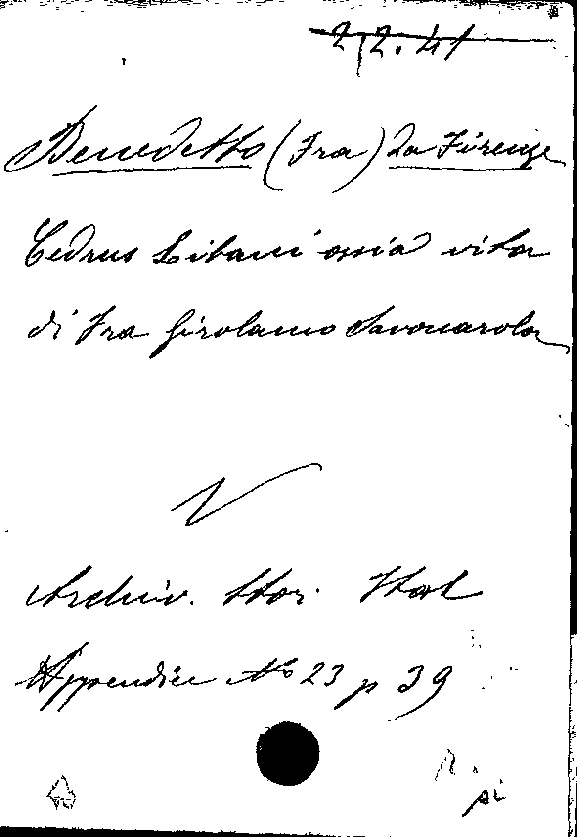 2.2.41
Benedetto (Fra) da Firenze
Cedrus Libani ossia vita
di Fra Girolamo Savonarola
V
Archiv. Stor. Ital
Appendice No 23 p 39